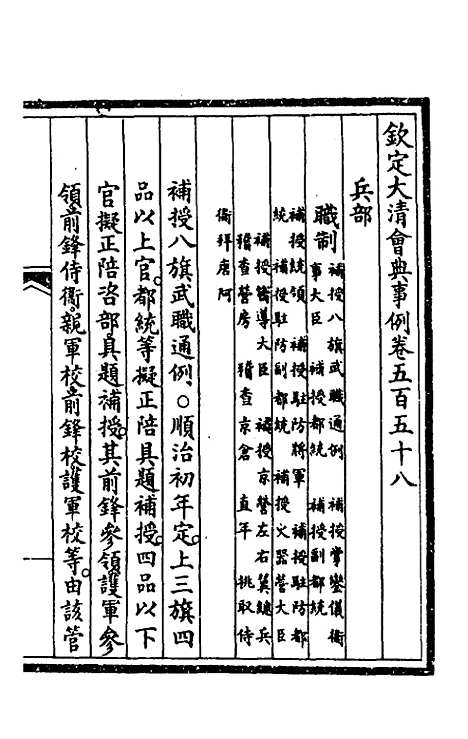 欽定大清會典事例卷五百五十八
兵部
職制
補授八旗武職通例 補授掌鑾儀衛
事大臣 補授都統 補授副都統
補授統領 補授駐防將軍 補授駐防都
統 補授駐防副都統 補授火器營大臣
補授嚮導大臣 補授京營左右翼總兵
稽查營房 稽查京倉 直年 挑取侍
衞拜唐阿
補授八旗武職通例○順治初年定上三旗四
品以上官都統等擬正陪具題補授四品以下
官擬正陪咨部具題補授其前鋒參領護軍參
領前鋒侍衞親軍校前鋒校護軍校等由該管